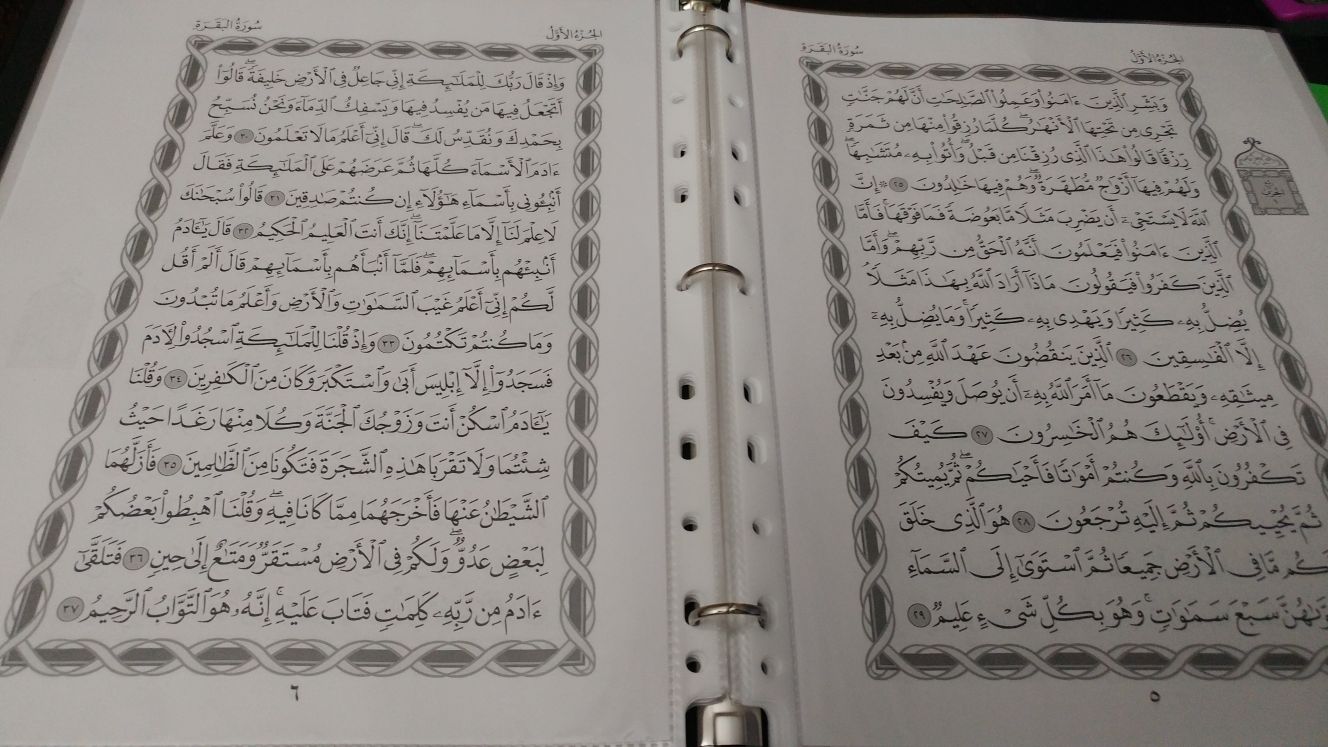 سُورَةُ البَقَرَةِ
الجُزْءُ الأَوَّلُ
وَبَشِّرِ ٱلَّذِينَ ءَامَنُوا۟ وَعَمِلُوا۟ ٱلصَّٰلِحَٰتِ أَنَّ لَهُمْ جَنَّٰتٍ
تَجْرِى مِن تَحْتِهَا ٱلْأَنْهَٰرُ ۖ كُلَّمَا رُزِقُوا۟ مِنْهَا مِن ثَمَرَةٍ
رِّزْقًا قَالُوا۟ هَٰذَا ٱلَّذِى رُزِقْنَا مِن قَبْلُ ۖ وَأُتُوا۟ بِهِۦ مُتَشَٰبِهًا ۖ
وَلَهُمْ فِيهَآ أَزْوَٰجٌ مُّطَهَّرَةٌ ۖ وَهُمْ فِيهَا خَٰلِدُونَ ٢٥ ۞ إِنَّ
ٱللَّهَ لَا يَسْتَحْىِۦٓ أَن يَضْرِبَ مَثَلًا مَّا بَعُوضَةً فَمَا فَوْقَهَا ۚ فَأَمَّا
ٱلَّذِينَ ءَامَنُوا۟ فَيَعْلَمُونَ أَنَّهُ ٱلْحَقُّ مِن رَّبِّهِمْ ۖ وَأَمَّا
ٱلَّذِينَ كَفَرُوا۟ فَيَقُولُونَ مَاذَآ أَرَادَ ٱللَّهُ بِهَٰذَا مَثَلًا ۘ
يُضِلُّ بِهِۦ كَثِيرًا وَيَهْدِى بِهِۦ كَثِيرًا ۚ وَمَا يُضِلُّ بِهِۦٓ
إِلَّا ٱلْفَٰسِقِينَ ٢٦ ٱلَّذِينَ يَنقُضُونَ عَهْدَ ٱللَّهِ مِنۢ بَعْدِ
مِيثَٰقِهِۦ وَيَقْطَعُونَ مَآ أَمَرَ ٱللَّهُ بِهِۦٓ أَن يُوصَلَ وَيُفْسِدُونَ
فِى ٱلْأَرْضِ ۚ أُو۟لَٰٓئِكَ هُمُ ٱلْخَٰسِرُونَ ٢٧ كَيْفَ
تَكْفُرُونَ بِٱللَّهِ وَكُنتُمْ أَمْوَٰتًا فَأَحْيَٰكُمْ ۖ ثُمَّ يُمِيتُكُمْ
ثُمَّ يُحْيِيكُمْ ثُمَّ إِلَيْهِ تُرْجَعُونَ ٢٨ هُوَ ٱلَّذِى خَلَقَ
مَّا فِى ٱلْأَرْضِ جَمِيعًا ثُمَّ ٱسْتَوَىٰٓ إِلَى ٱلسَّمَآءِ
سَبْعَ سَمَٰوَٰتٍ ۚ وَهُوَ بِكُلِّ شَىْءٍ عَلِيمٌ ٢٩
٥
سُورَةُ البَقَرَةِ
الجُزْءُ الأَوَّلُ
وَإِذْ قَالَ رَبُّكَ لِلْمَلَٰٓئِكَةِ إِنِّى جَاعِلٌ فِى ٱلْأَرْضِ خَلِيفَةً ۖ قَالُوٓا۟
أَتَجْعَلُ فِيهَا مَن يُفْسِدُ فِيهَا وَيَسْفِكُ ٱلدِّمَآءَ وَنَحْنُ نُسَبِّحُ
بِحَمْدِكَ وَنُقَدِّسُ لَكَ ۖ قَالَ إِنِّىٓ أَعْلَمُ مَا لَا تَعْلَمُونَ ٣٠ وَعَلَّمَ
ءَادَمَ ٱلْأَسْمَآءَ كُلَّهَا ثُمَّ عَرَضَهُمْ عَلَى ٱلْمَلَٰٓئِكَةِ فَقَالَ
أَنۢبِـُٔونِى بِأَسْمَآءِ هَٰٓؤُلَآءِ إِن كُنتُمْ صَٰدِقِينَ ٣١ قَالُوا۟ سُبْحَٰنَكَ
لَا عِلْمَ لَنَآ إِلَّا مَا عَلَّمْتَنَآ ۖ إِنَّكَ أَنتَ ٱلْعَلِيمُ ٱلْحَكِيمُ ٣٢ قَالَ يَٰٓـَٔادَمُ
أَنۢبِئْهُم بِأَسْمَآئِهِمْ ۖ فَلَمَّآ أَنۢبَأَهُم بِأَسْمَآئِهِمْ قَالَ أَلَمْ أَقُل
لَّكُمْ إِنِّىٓ أَعْلَمُ غَيْبَ ٱلسَّمَٰوَٰتِ وَٱلْأَرْضِ وَأَعْلَمُ مَا تُبْدُونَ
وَمَا كُنتُمْ تَكْتُمُونَ ٣٣ وَإِذْ قُلْنَا لِلْمَلَٰٓئِكَةِ ٱسْجُدُوا۟ لِـَٔادَمَ
فَسَجَدُوٓا۟ إِلَّآ إِبْلِيسَ أَبَىٰ وَٱسْتَكْبَرَ وَكَانَ مِنَ ٱلْكَٰفِرِينَ ٣٤ وَقُلْنَا
يَٰٓـَٔادَمُ ٱسْكُنْ أَنتَ وَزَوْجُكَ ٱلْجَنَّةَ وَكُلَا مِنْهَا رَغَدًا حَيْثُ
شِئْتُمَا وَلَا تَقْرَبَا هَٰذِهِ ٱلشَّجَرَةَ فَتَكُونَا مِنَ ٱلظَّٰلِمِينَ ٣٥ فَأَزَلَّهُمَا
ٱلشَّيْطَٰنُ عَنْهَا فَأَخْرَجَهُمَا مِمَّا كَانَا فِيهِ ۖ وَقُلْنَا ٱهْبِطُوا۟ بَعْضُكُمْ
لِبَعْضٍ عَدُوٌّ ۖ وَلَكُمْ فِى ٱلْأَرْضِ مُسْتَقَرٌّ وَمَتَٰعٌ إِلَىٰ حِينٍ ٣٦ فَتَلَقَّىٰٓ
ءَادَمُ مِن رَّبِّهِۦ كَلِمَٰتٍ فَتَابَ عَلَيْهِ ۚ إِنَّهُۥ هُوَ ٱلتَّوَّابُ ٱلرَّحِيمُ ٣٧
٦